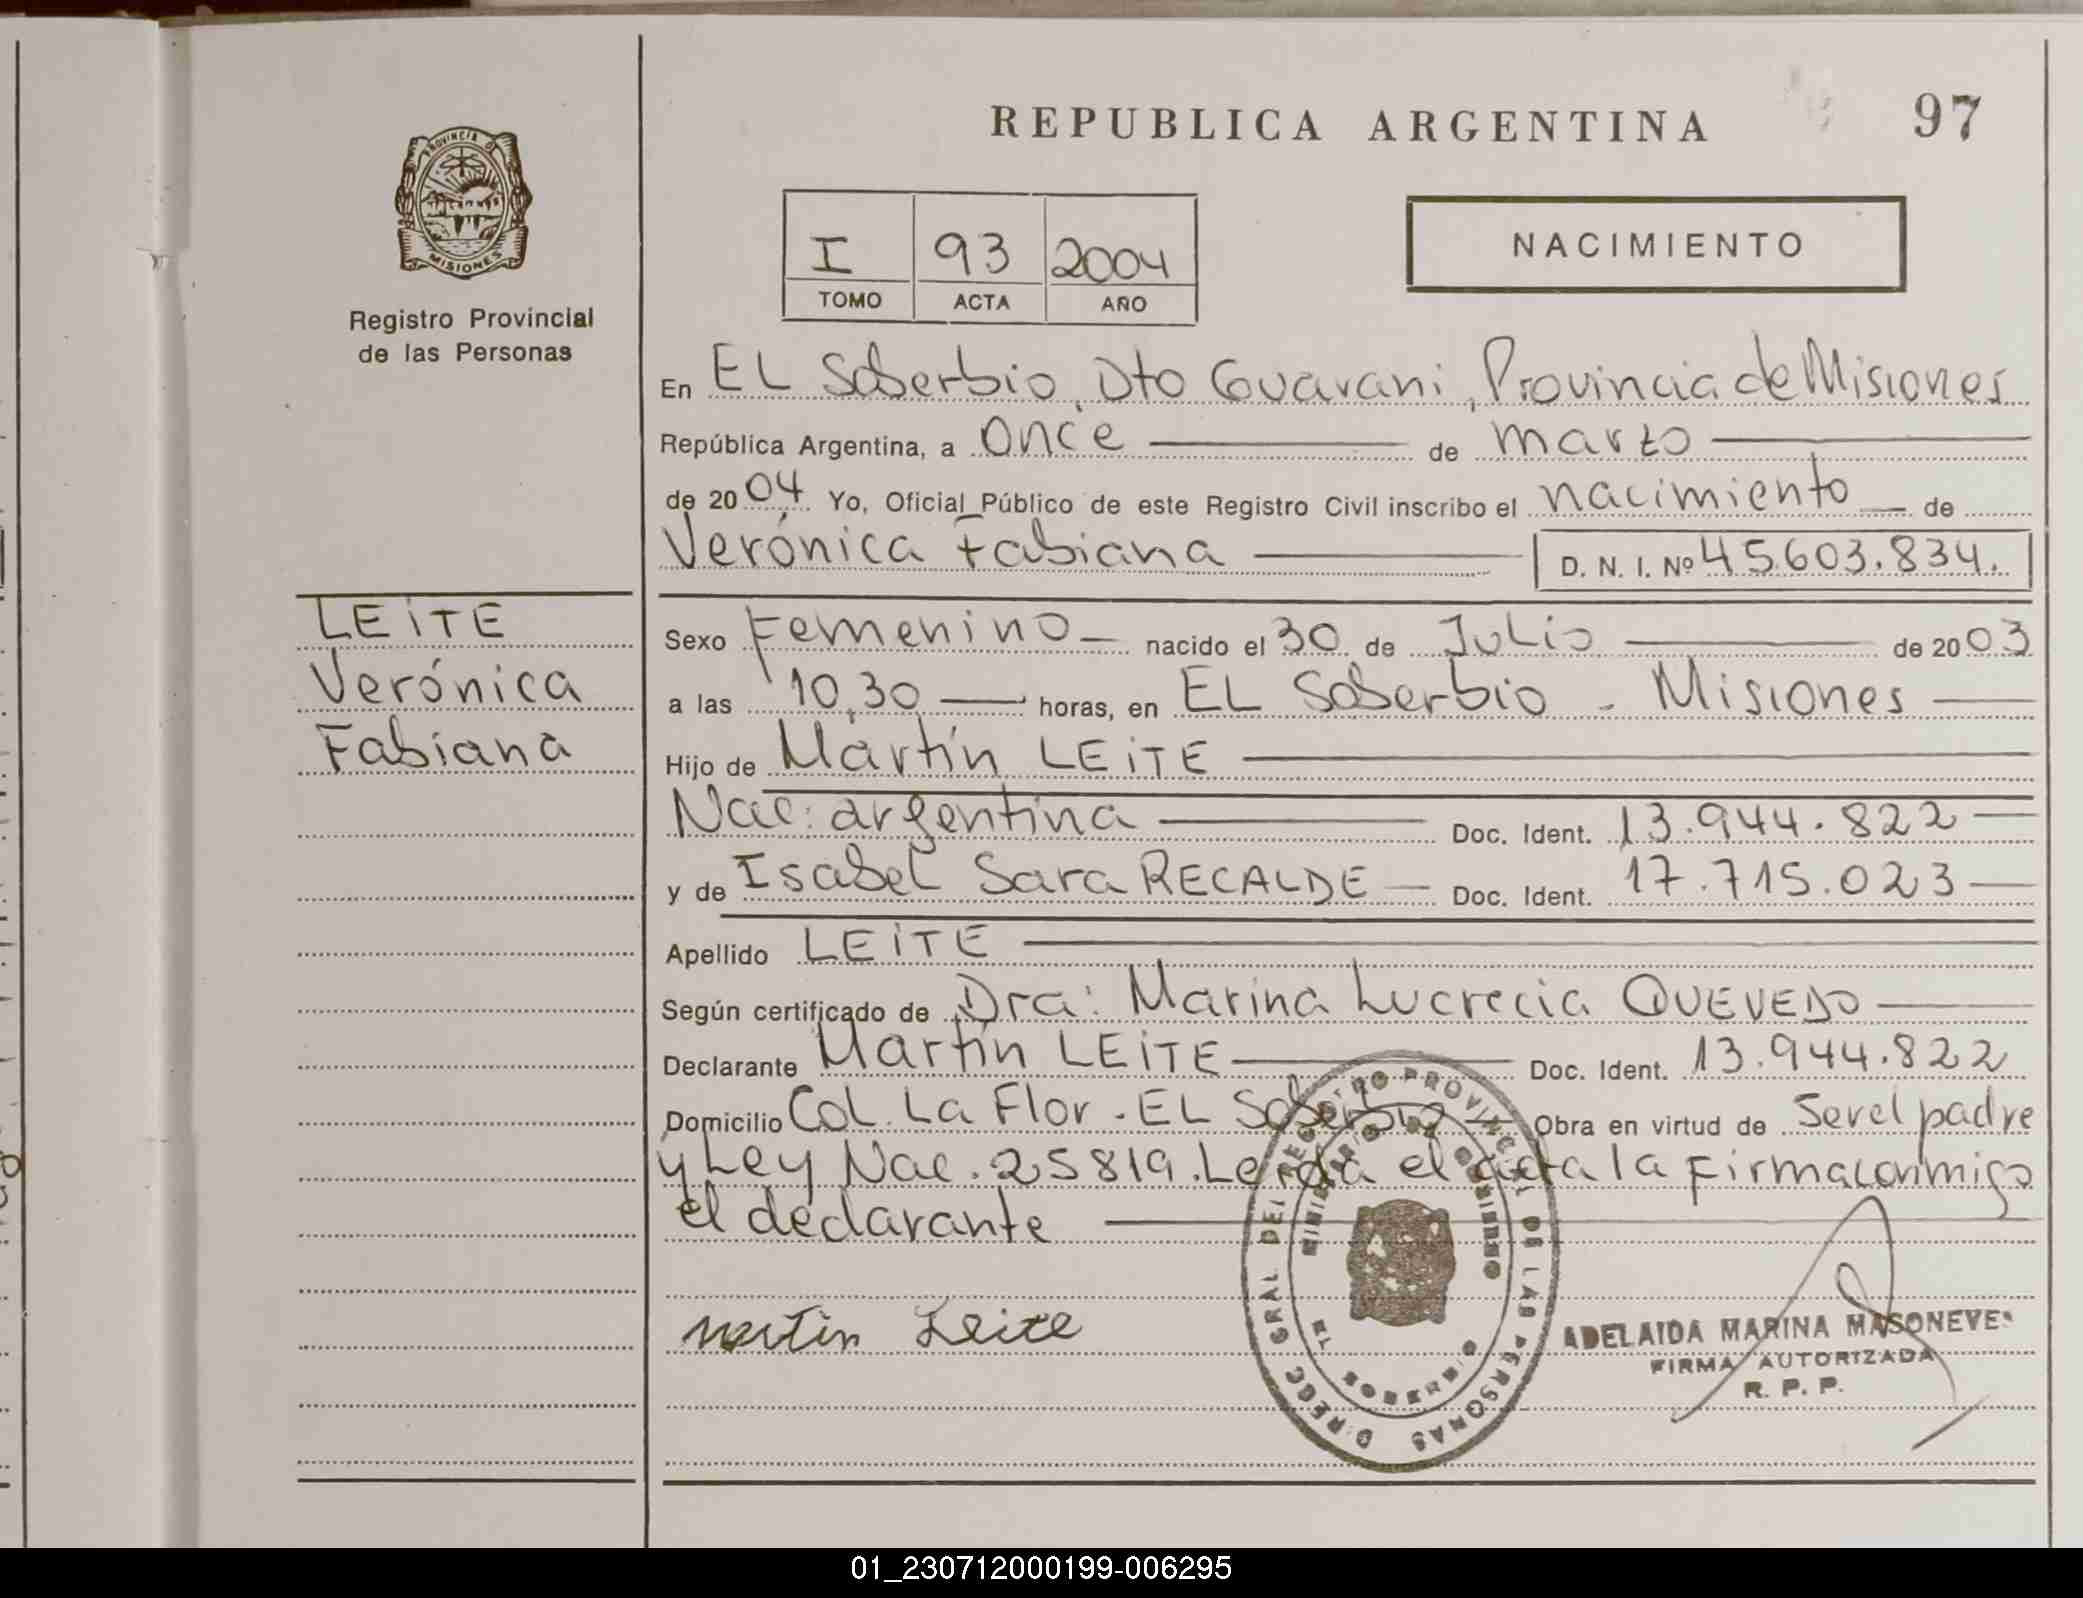 REPUBLICA ARGENTINA
97
PROVINCIA DE
MISIONES
Registro Provincial
de las Personas
I 93 2004
TOMO ACTA AÑO
NACIMIENTO
En EL Soberbio, Dto Guarani, Provincia de Misiones
República Argentina, a Once de marzo
de 2004 Yo, Oficial Público de este Registro Civil inscribo el nacimiento de
Verónica Fabiana D. N. I. Nº 45.603.834.
LEITE
Verónica
Fabiana
Sexo Femenino nacido el 30 de Julio de 2003
a las 10,30 horas, en EL Soberbio - Misiones
Hijo de Martín LEITE
Nac: argentina Doc. Ident. 13.944.822
y de Isabel Sara RECALDE Doc. Ident. 17.715.023
Apellido LEITE
Según certificado de Dra: Marina Lucrecia QUEVEDO
Declarante Martín LEITE Doc. Ident. 13.944.822
Domicilio Col. La Flor - EL Soberbio Obra en virtud de Ser el padre
y Ley Nac. 25819. Leida el acta la firma conmigo
el declarante
Martin Leite
DIRECC GRAL DEL REGISTRO PROVINCIAL DE LAS PERSONAS
MINISTERIO DE GOBIERNO
MISIONES
ADELAIDA MARINA MASONEVE
FIRMA AUTORIZADA
R. P. P.
01_230712000199-006295